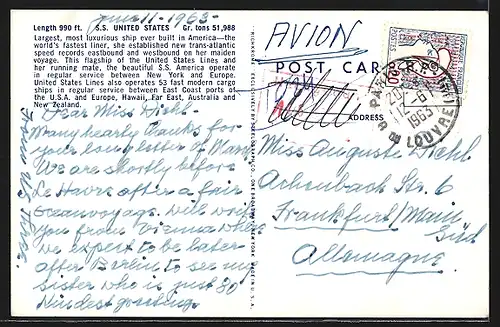 June 11 - 1963 -
Length 990 ft. S.S. UNITED STATES Gr. tons 51,988
Largest, most luxurious ship ever built in America—the
world's fastest liner, she established new trans-atlantic
speed records eastbound and westbound on her maiden
voyage. This flagship of the United States Lines and
her running mate, the beautiful S.S. America operate
in regular service between New York and Europe.
United States Lines also operates 53 fast modern cargo
ships in regular service between East Coast ports of
the U.S.A. and Europe, Hawaii, Far East, Australia and
New Zealand.
Dear Miss Diehl -
Many hearty thanks for
your long letter of May.
We are shortly before
Le Havre after a fair
Ocean voyage. will write
you from Vienna where
we expect to be later
after Berlin to see my
sister who is just 80
Kindest greetings
AVION
POST CARD
ADDRESS
PARIS
1963
LOUVRE
Miss Auguste Diehl
Achenbach Str. 6
Frankfurt/Main
Süd
Allemagne